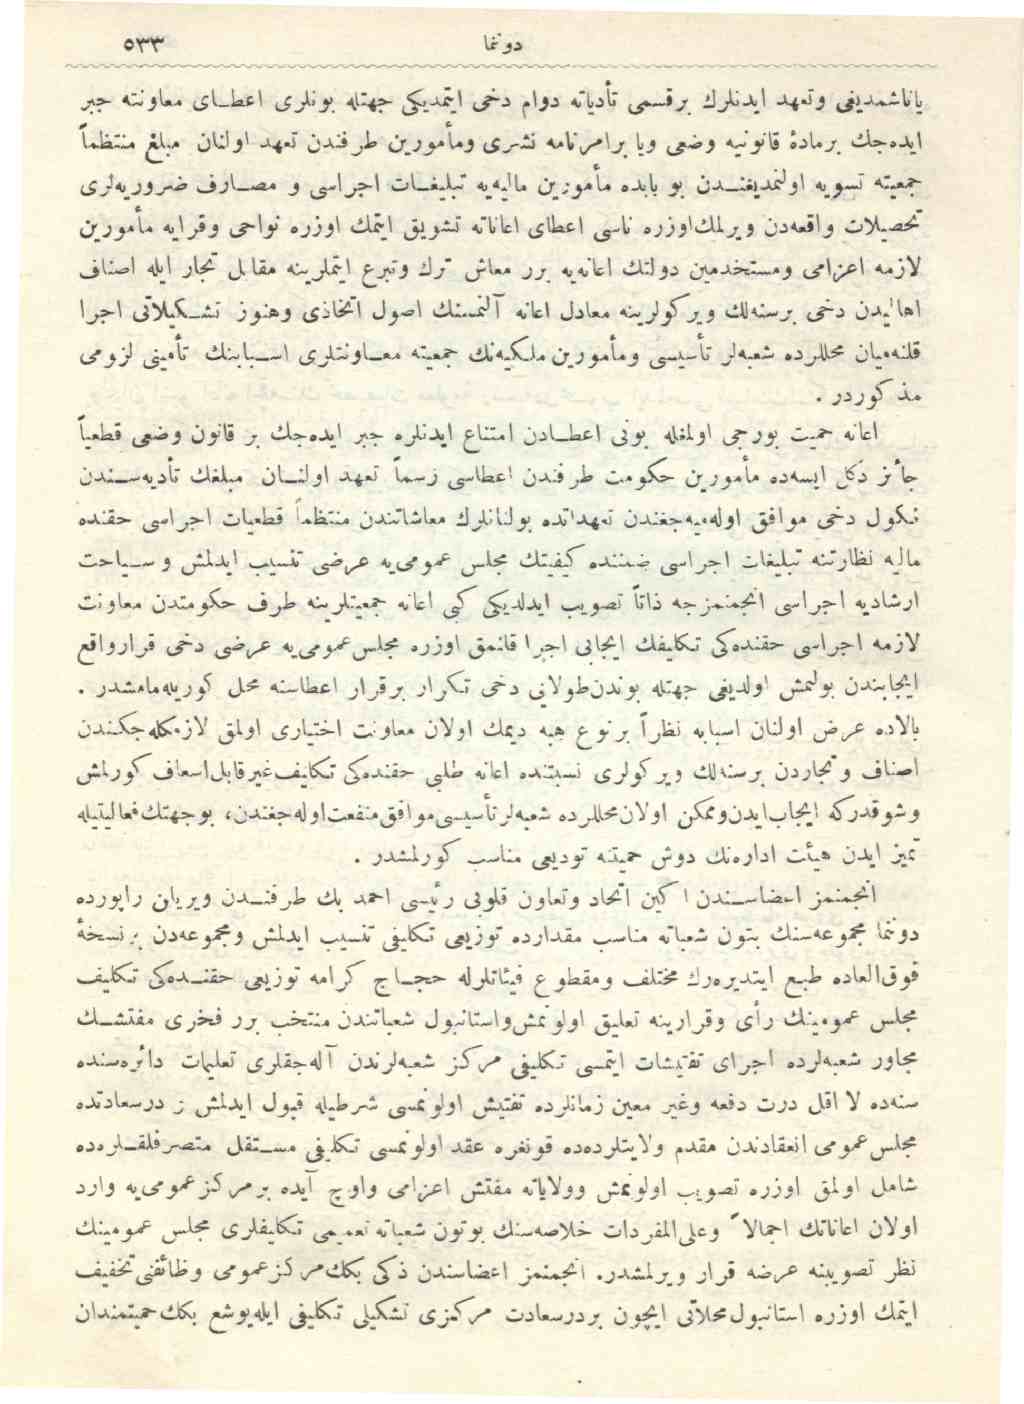 دوننما ٥٣٣
ياناشمديغى وتعهد ايدنلرك برقسمى تأدياته دوام دخى ايتمديكى جهتله بونلرى اعطاى معاونته جبر
ايده‌جك برمادۀ قانونيه وضعى ويا برامرنامه نشرى ومأمورين طرفندن تعهد اولنان مبلغ منتظماً
جمعيته تسويه اولنمديغندن بو بابده مأمورين ماليه‌يه تبليغات اجراسى و مصارف ضروريه‌لرى
تحصيلات واقعه‌دن ويرلمك‌اوزره ناسى اعطاى اعاناته تشويق ايتمك اوزره نواحى وقرايه مأمورين
لازمه اعزامى ومستخدمين دولتك اعانه‌يه برر معاش ترك وتبرع ايتملرينه مقابل تجار ايله اصناف
اهاليدن دخى برسنه‌لك ويركولرينه معادل اعانه آلنمسنك اصول اتخاذى وهنوز تشكيلاتى اجرا
قلنه‌ميان محللرده شعبه‌لر تأسيسى ومأمورين ملكيه‌نك جمعيته معاونتلرى اسبابنك تأمينى لزومى
مذكوردر .
اعانه حميت بورجى اولمغله بونى اعطادن امتناع ايدنلره جبر ايده‌جك بر قانون وضعى قطعياً
جائز دكل ايسه‌ده مأمورين حكومت طرفندن اعطاسى رسماً تعهد اولنان مبلغك تأديه‌سندن
نكول دخى موافق اوله‌ميه‌جغندن تعهداتده بولنانلرك معاشاتندن منتظماً قطعيات اجراسى حقنده
ماليه نظارتنه تبليغات اجراسى ضمننده كيفيتك مجلس عمومى‌يه عرضى تنسيب ايدلمش و سياحت
ارشاديه اجراسى انجمنمزجه ذاتاً تصويب ايدلديكى كبى اعانه جمعيتلرينه طرف حكومتدن معاونت
لازمه اجراسى حقنده‌كى تكليفك ايجابى اجرا قلنمق اوزره مجلس‌عمومى‌يه عرضى دخى قرارواقع
ايجابندن بولنمش اولديغى جهتله بوندن‌طولايى دخى تكرار برقرار اعطاسنه محل كوريله‌مامشدر .
بالاده عرض اولنان اسبابه نظراً برنوع هبه ديمك اولان معاونت اختيارى اولمق لازم‌كله‌جكندن
اصناف و تجاردن برسنه‌لك ويركولرى نسبتنده اعانه طلبى حقنده‌كى تكليف‌غيرقابل‌اسعاف كورلمش
وشوقدركه ايجاب‌ايدن‌وممكن اولان‌محللرده شعبه‌لرتأسيسى‌موافق‌منفعت‌اوله‌جغندن، بوجهتك‌فعاليتيله
تميز ايدن هيئت اداره‌نك دوش حميتنه توديعى مناسب كورلمشدر .
انجمنمز اعضاسندن اكين اتحاد وتعاون قلوبى رئيسى احمد بك طرفندن ويريلن راپورده
دوننما مجموعه‌سنك بتون شعباته مناسب مقدارده توزيعى تكليفى تنسيب ايدلمش ومجموعه‌دن برنسخۀ
فوق‌العاده طبع ايتديره‌رك مختلف ومقطوع فيئاتلرله حجاج كرامه توزيعى حقنده‌كى تكليف
مجلس عمومينك رأى وقرارينه تعليق اولونمش‌واستانبول شعباتندن منتخب برر فخرى مفتشك
مجاور شعبه‌لرده اجراى تفتيشات ايتمسى تكليفى مركز شعبه‌لرندن آله‌جقلرى تعليمات دائره‌سنده
سنه‌ده لااقل درت دفعه وغير معين زمانلرده تفتيش اولونمسى شرطيله قبول ايدلمش و درسعادتده
مجلس‌عمومى انعقادندن مقدم ولايتلرده‌ده قونغره عقد اولونمسى تكليفى مستقل متصرفلقلرده‌ده
شامل اولمق اوزره تصويب اولونمش وولاياته مفتش اعزامى واوچ آيده برمركزعمومى‌يه وارد
اولان اعاناتك اجمالاً وعلى‌المفردات خلاصه‌سنك بوتون شعباته تعميمى تكليفلرى مجلس عمومينك
نظر تصويبنه عرضه قرار ويرلمشدر. انجمنمز اعضاسندن ذكى بكك‌مركزعمومى وظائفنى‌تخفيف
ايتمك اوزره استانبول‌محلاتى ايچون بردرسعادت مركزى تشكيلى تكليفى ايله‌يوشع بكك‌حميتمندان